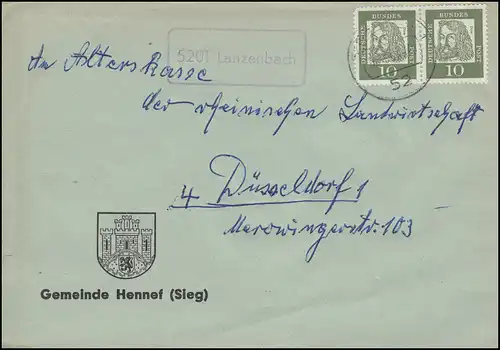 DEUTSCHE BUNDES POST 10
DEUTSCHE BUNDES POST 10
5201 Lanzenbach
52
An Alterskasse
der rheinischen Landwirtschaft
4 Düsseldorf 1
Merowingerstr. 103
Gemeinde Hennef (Sieg)